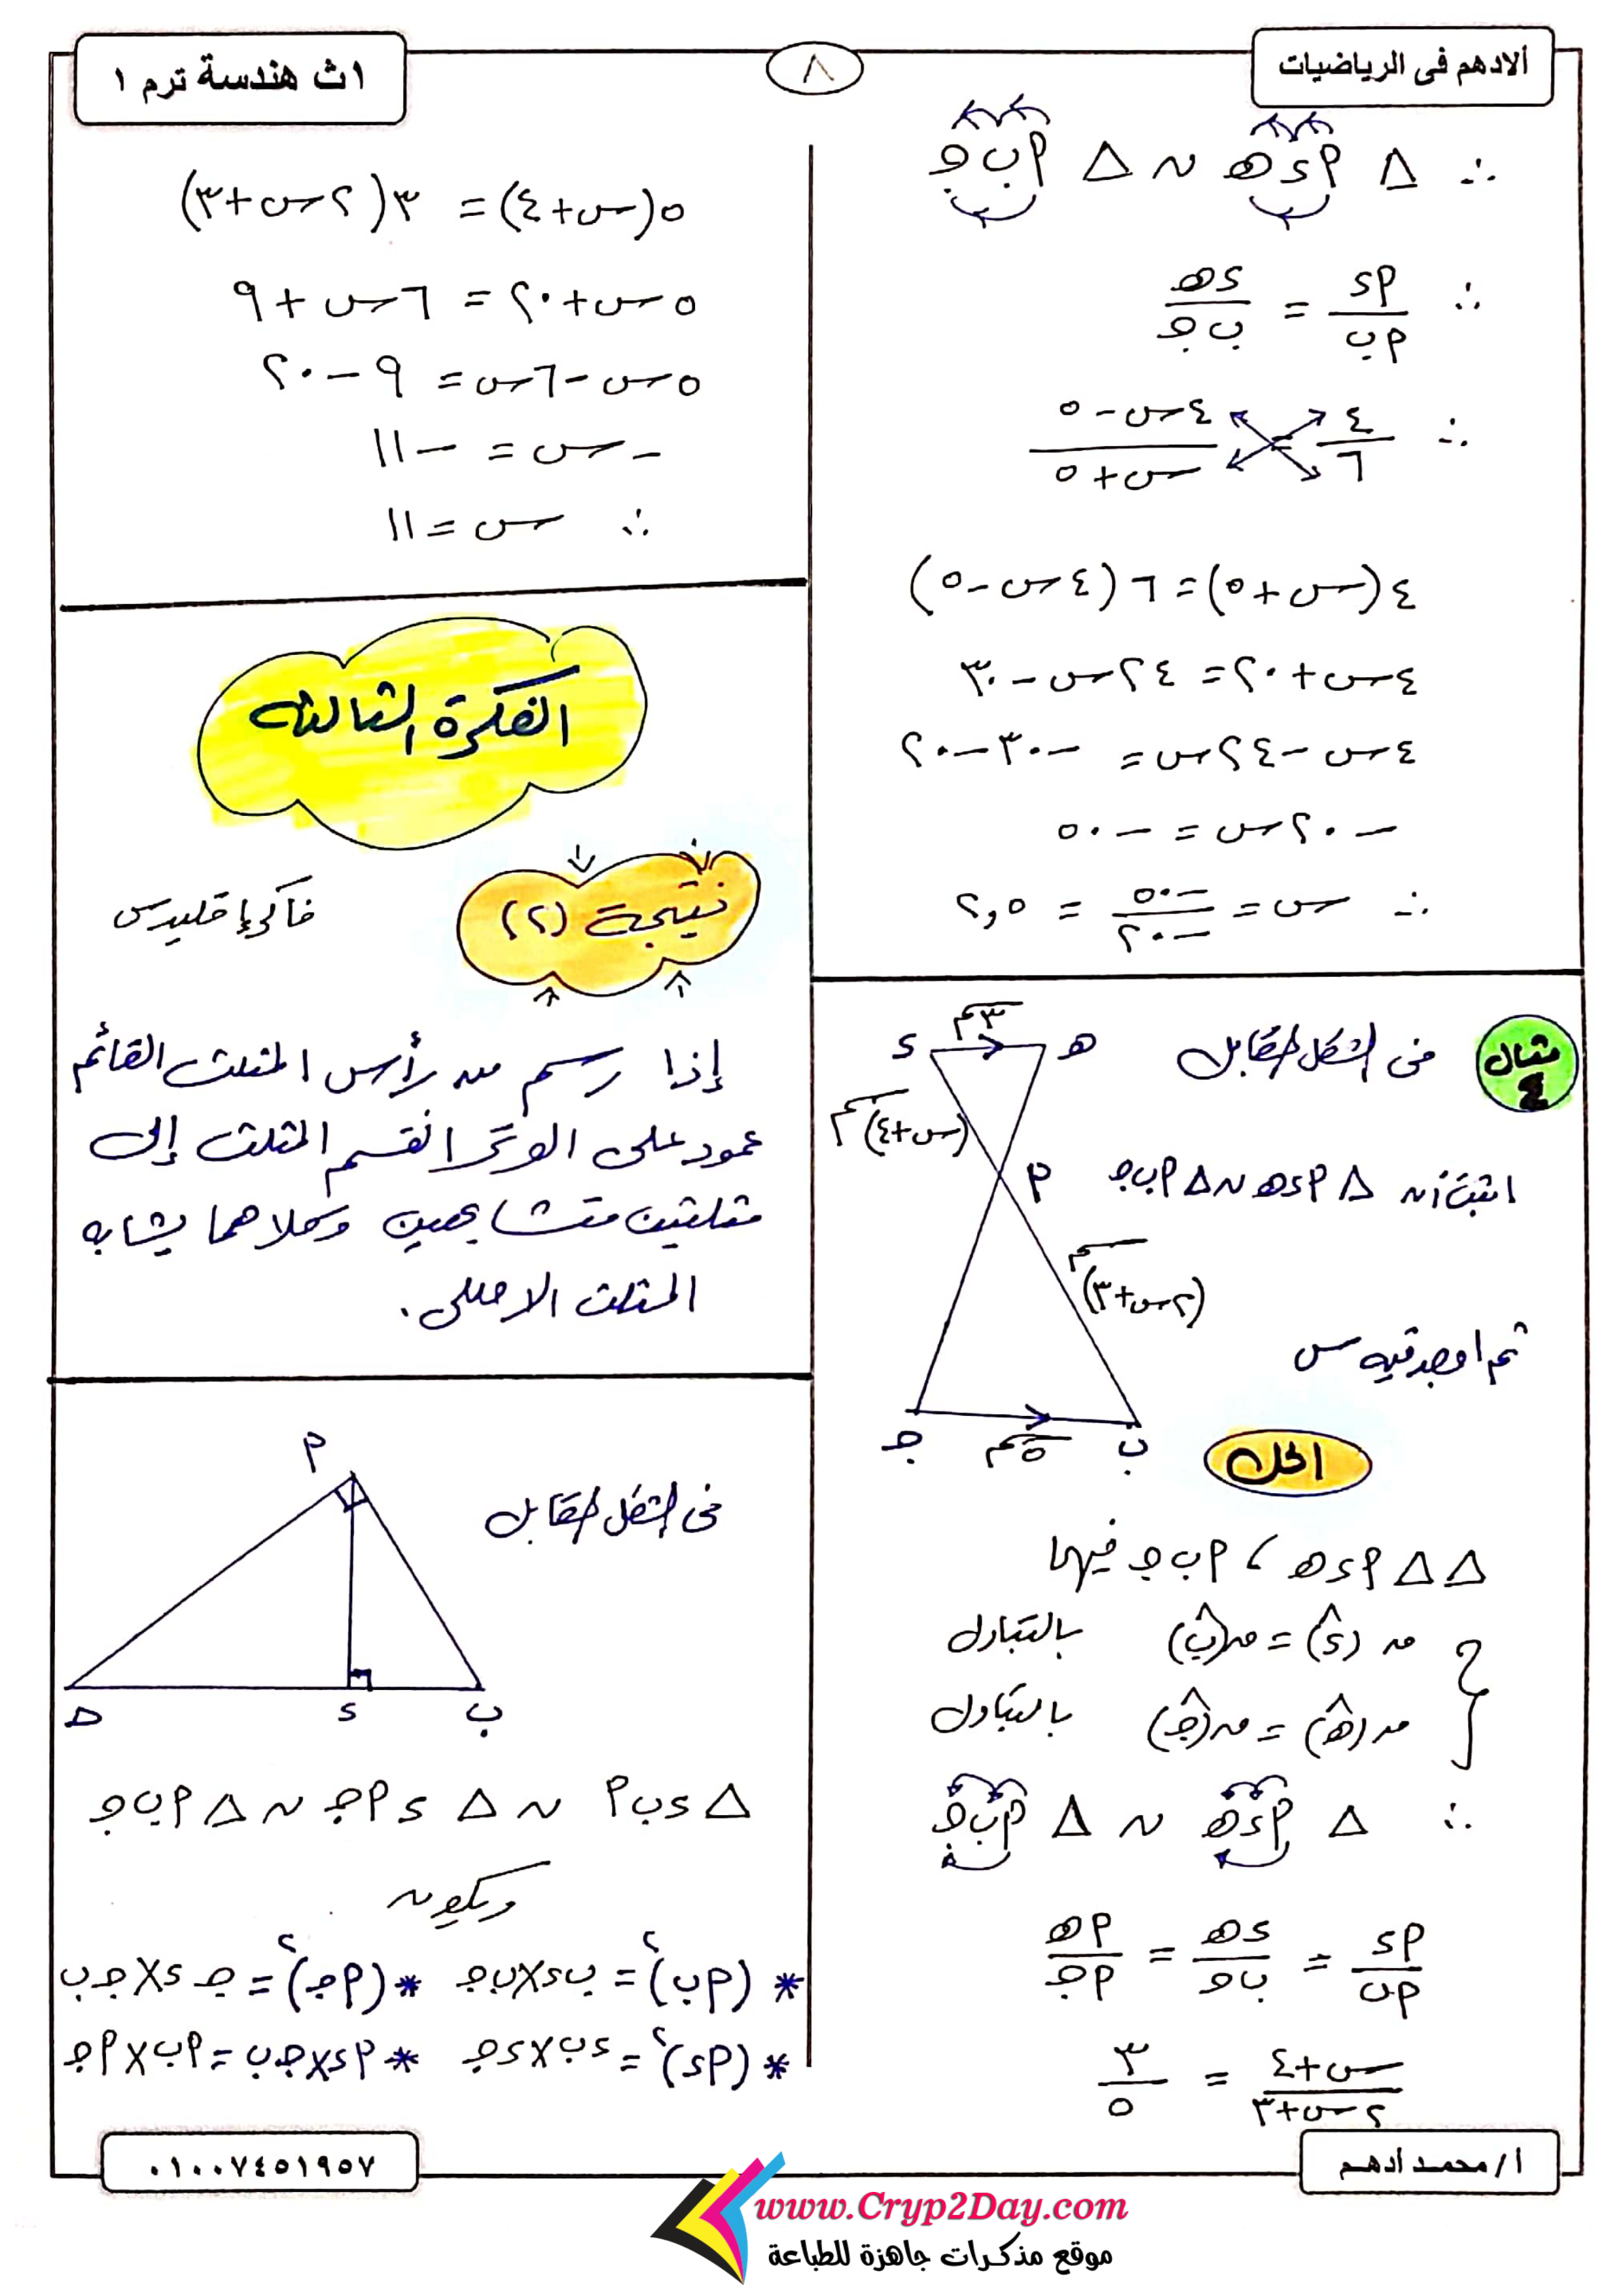 الادهم فى الرياضيات
٨
١ث هندسة ترم ١
∴ Δ أ د هـ ~ Δ أ ب جـ
∴ أ د / أ ب = د هـ / ب جـ
∴ ٤ / ٦ = ٤س - ٥ / س + ٥
٤(س + ٥) = ٦(٤س - ٥)
٤س + ٢٠ = ٢٤س - ٣٠
٤س - ٢٤س = -٣٠ - ٢٠
-٢٠س = -٥٠
∴ س = -٥٠ / -٢٠ = ٢,٥
مثال ٤
فى الشكل المقابل
اثبت أن Δ أ د هـ ~ Δ أ ب جـ
ثم اوجد قيمه س
د
هـ
٣سم
(س+٤)سم
أ
(٢س+٣)سم
جـ
ب
٥سم
الحل
Δ Δ أ د هـ ، أ ب جـ فيهما
ق(د) = ق(ب) بالتبادل
ق(هـ) = ق(جـ) بالتبادل
∴ Δ أ د هـ ~ Δ أ ب جـ
أ د / أ ب = د هـ / ب جـ = أ هـ / أ جـ
س+٤ / ٢س+٣ = ٣ / ٥
٥(س+٤) = ٣(٢س+٣)
٥س+٢٠ = ٦س+٩
٥س-٦س = ٩-٢٠
-س = -١١
∴ س = ١١
الفكرة الثالثه
نتيجة (٢)
فاكر إقليدس
إذا رسم من رأس المثلث القائم
عمود على الوتر انقسم المثلث إلى
مثلثين متشابهين وكلاهما يشابه
المثلث الاصلى.
فى الشكل المقابل
أ
جـ
د
ب
Δ د ب أ ~ Δ د أ جـ ~ Δ أ ب جـ
ويكون
* (أ ب)٢ = ب د × ب جـ * (أ جـ)٢ = جـ د × جـ ب
* (أ د)٢ = د ب × د جـ * أ د × جـ ب = أ ب × أ جـ
أ/ محمد أدهم
٠١٠٠٧٤٥١٩٥٧
www.Cryp2Day.com
موقع مذكرات جاهزة للطباعة